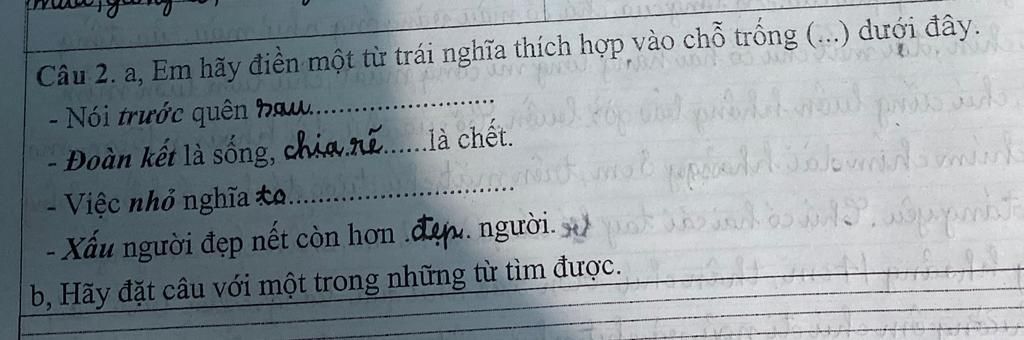 Câu 2. a, Em hãy điền một từ trái nghĩa thích hợp vào chỗ trống (...) dưới đây.
- Nói trước quên sau..............................
- Đoàn kết là sống, chia rẽ......là chết.
- Việc nhỏ nghĩa to......................................
- Xấu người đẹp nết còn hơn .đẹp. người.
b, Hãy đặt câu với một trong những từ tìm được.